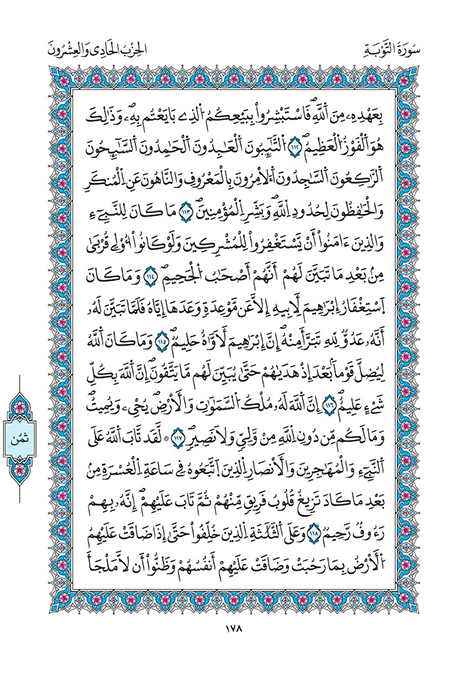 سُورَةُ التَّوْبَةِ
الحِزْبُ الحَادِى وَالعِشْرُونَ
بِعَهْدِهِۦ مِنَ اَ۬للَّهِۖ فَاسْتَبْشِرُواْ بِبَيْعِكُمُ اُ۬لذِے بَايَعْتُم بِهِۦۖ وَذَٰلِكَ
هُوَ اَ۬لْفَوْزُ اُ۬لْعَظِيمُۖ ١١٢ اُ۬لتَّٰٓئِبُونَ اَ۬لْعَٰبِدُونَ اَ۬لْحَٰمِدُونَ اَ۬لسَّٰٓئِحُونَ
اَ۬لرَّٰكِعُونَ اَ۬لسَّٰجِدُونَ اَ۬لَامِرُونَ بِالْمَعْرُوفِ وَالنَّاهُونَ عَنِ اِ۬لْمُنكَرِ
وَالْحَٰفِظُونَ لِحُدُودِ اِ۬للَّهِۖ وَبَشِّرِ اِ۬لْمُؤْمِنِينَۖ ١١٣ مَا كَانَ لِلنَّبِےٓءِ
وَالذِينَ ءَامَنُوٓاْ أَنْ يَّسْتَغْفِرُواْ لِلْمُشْرِكِينَ وَلَوْ كَانُوٓاْ أُوْلِے قُرْبَىٰ
مِنۢ بَعْدِ مَا تَبَيَّنَ لَهُمُۥٓ أَنَّهُمُۥٓ أَصْحَٰبُ اُ۬لْجَحِيمِۖ ١١٤ وَمَا كَانَ
اَ۪سْتِغْفَارُ إِبْرَٰهِيمَ لِأَبِيهِ إِلَّا عَن مَّوْعِدَةٍ وَعَدَهَآ إِيَّاهُ فَلَمَّا تَبَيَّنَ لَهُۥٓ
أَنَّهُۥ عَدُوٌّ لِّلهِ تَبَرَّأَ مِنْهُۖ إِنَّ إِبْرَٰهِيمَ لَأَوَّٰهٌ حَلِيمٌۖ ١١٥ وَمَا كَانَ اَ۬للَّهُ
لِيُضِلَّ قَوْماَۢ بَعْدَ إِذْ هَدَىٰهُمْ حَتَّىٰ يُبَيِّنَ لَهُم مَّا يَتَّقُونَۖ إِنَّ اَ۬للَّهَ بِكُلِّ
شَےْءٍ عَلِيمٌۖ ١١٦ إِنَّ اَ۬للَّهَ لَهُۥ مُلْكُ اُ۬لسَّمَٰوَٰتِ وَالَارْضِۖ يُحْيِۦ وَيُمِيتُۖ
وَمَا لَكُم مِّن دُونِ اِ۬للَّهِ مِنْ وَّلِيّٖ وَلَا نَصِيرٖۖ ١١٧ ۞ لَّقَد تَّابَ اَ۬للَّهُ عَلَى
اَ۬لنَّبِےٓءِ وَالْمُهَٰجِرِينَ وَالَانصَارِ اِ۬لذِينَ اَ۪تَّبَعُوهُ فِے سَاعَةِ اِ۬لْعُسْرَةِ مِنۢ
بَعْدِ مَا كَادَ تَزِيغُ قُلُوبُ فَرِيقٖ مِّنْهُمْ ثُمَّ تَابَ عَلَيْهِمُۥٓۖ إِنَّهُۥ بِهِمْ
رَءُوفٌ رَّحِيمٌۖ ١١٨ وَعَلَى اَ۬لثَّلَٰثَةِ اِ۬لذِينَ خُلِّفُواْ حَتَّىٰٓ إِذَا ضَاقَتْ عَلَيْهِمُ
اُ۬لَارْضُ بِمَا رَحُبَتْ وَضَاقَتْ عَلَيْهِمُۥٓ أَنفُسُهُمْ وَظَنُّوٓاْ أَن لَّا مَلْجَأَ
ثُمُن
١٧٨